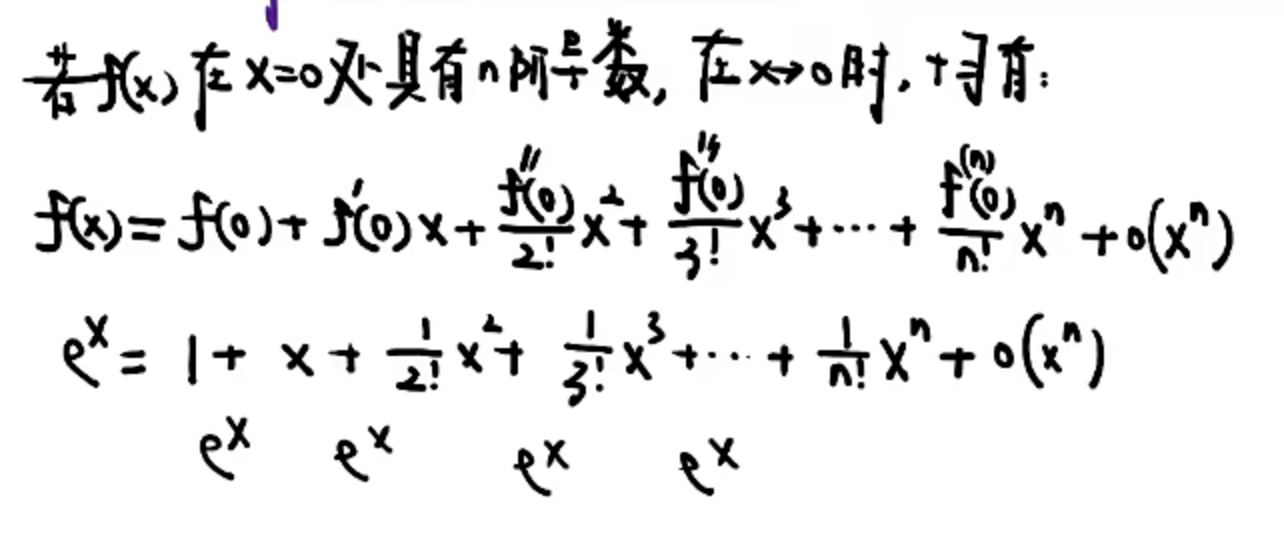 若f(x)在x=0处具有n阶导数,在x→0时,均有:
f(x)=f(0)+f'(0)x+\frac{f''(0)}{2!}x²+\frac{f'''(0)}{3!}x³+⋯+\frac{f^{(n)}(0)}{n!}xⁿ+o(xⁿ)
eˣ=1+x+\frac{1}{2!}x²+\frac{1}{3!}x³+⋯+\frac{1}{n!}xⁿ+o(xⁿ)
eˣ eˣ eˣ eˣ